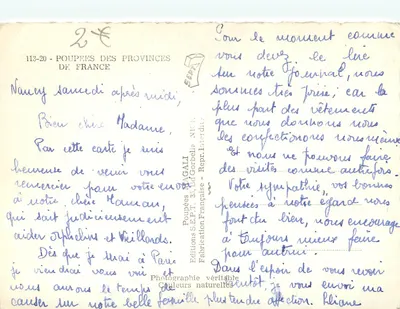 2€
113-20 - POUPÉES DES PROVINCES
DE FRANCE
Nancy samedi après midi,
Bien chère Madame,
Par cette carte je suis
heureuse de venir vous
remercier pour votre envoi
à notre chère Maman,
qui sait judicieusement
aider orphelins et Vieillards.
Dès que je serai à Paris
je viendrai vous voir et
nous aurons le temps de
causer sur notre belle famille
Pour le moment comme
vous devez le lire
sur notre Journal, nous
sommes très prises; car la
plus part des vêtements
que nous donnons nous
les confectionnons nous-mêmes
Et nous ne pouvons faire
des visites comme autrefois.
Votre sympathie, vos bonnes
pensées à notre égard nous
font du bien, nous encourage
à toujours mieux faire
pour autrui.
Dans l'espoir de vous revoir
bientôt, je vous envoi ma
plus tendre affection. Liliane
Poupées MAGALI
Editions S.E.P.T.
Fabrication Française - Repr. Interdite
Photographie véritable
Couleurs naturelles